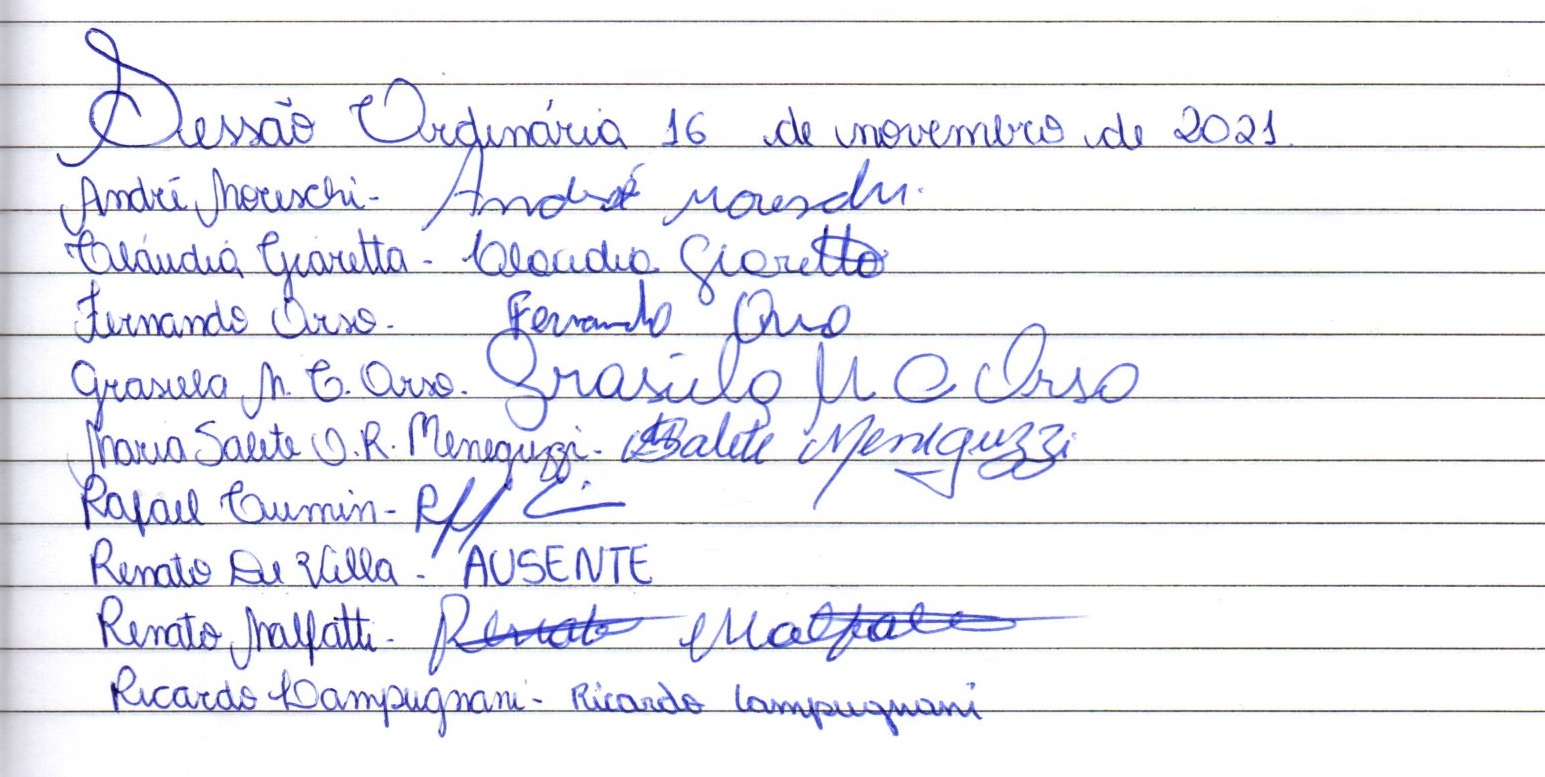 Sessão Ordinária 16 de novembro de 2021.
André Moreschi - André Moreschi.
Cláudia Giaretta - Claudia Giaretta
Fernando Orso. Fernando Orso
Grasiela M. C. Orso. Grasiela M C Orso
Maria Salete O. R. Meneguzzi - Salete Meneguzzi
Rafael Cumin -
Renato De Villa - AUSENTE
Renato Malfatti - Renato Malfatti
Ricardo Lampugnani - Ricardo Lampugnani